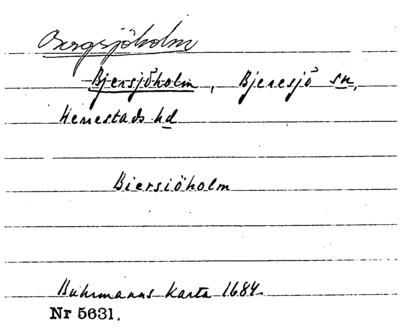 Bergsjöholm
Bjersjöholm, Bjeresjö sn,
Herrestads hd
Biersiöholm
Buhrmanns Karta 1684.
Nr 5631.